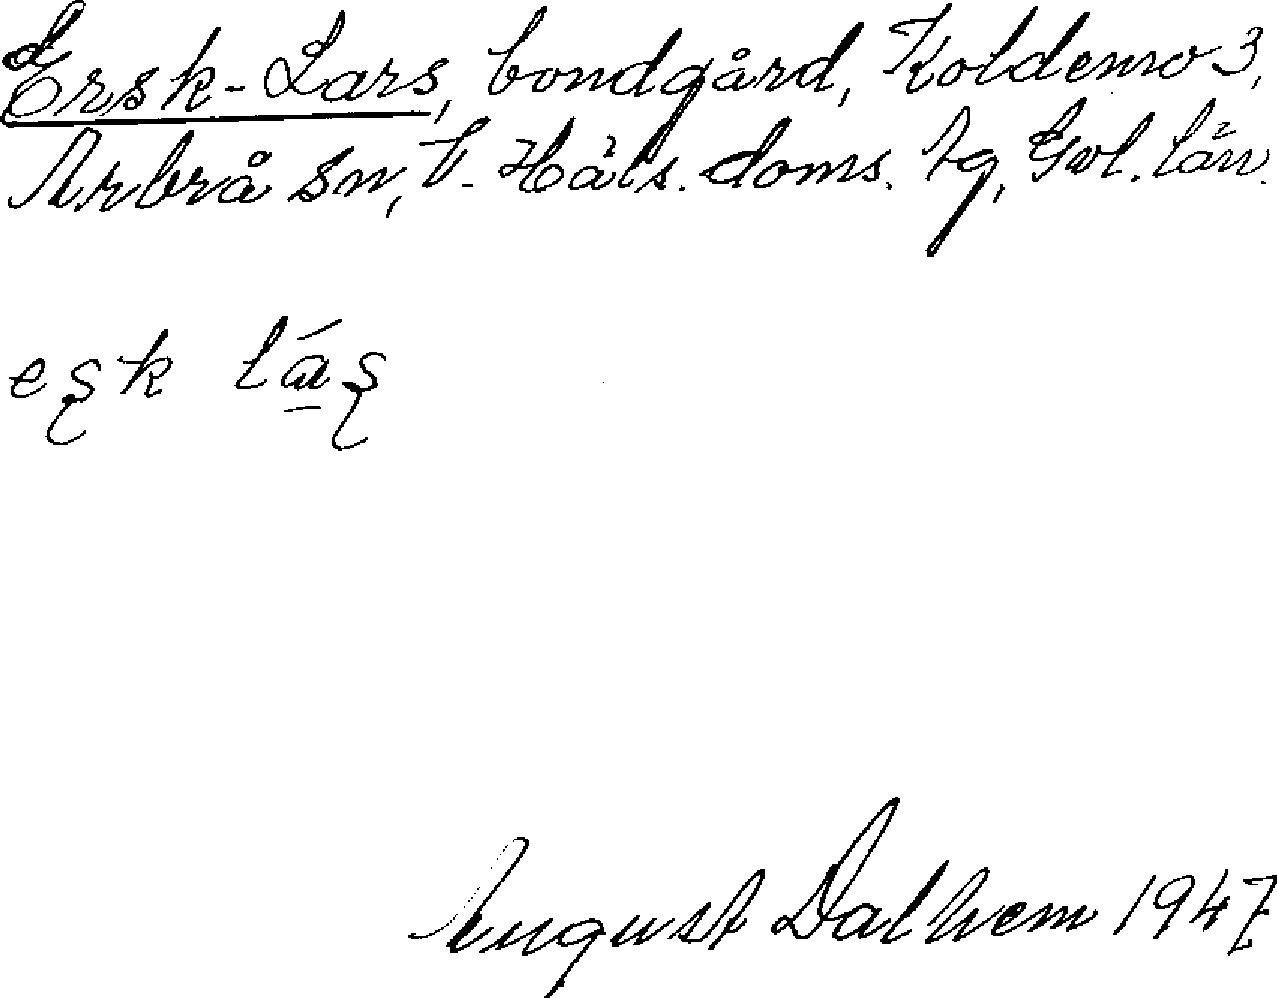 Ersk-Lars, bondgård, Koldemo 3,
Arbrå sn, V. Häls. doms. tg, Gvl. län.
eʂk lá̱ʂ
August Dalhem 1947